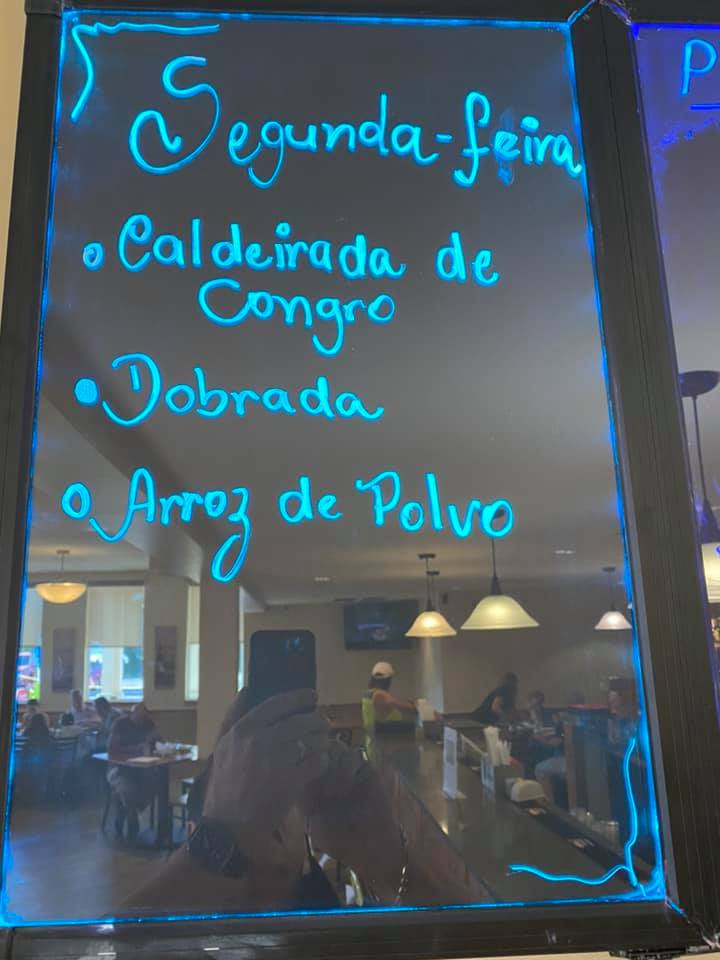 Segunda-feira
Caldeirada de
Congro
Dobrada
Arroz de Polvo
P